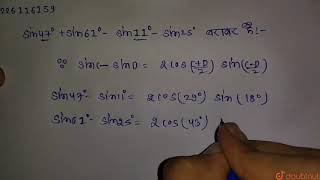 226116159
sin47° + sin61° - sin11° - sin25° बराबर है:-
∵ sinC - sinD = 2cos(C+D/2) sin(C-D/2)
sin47° - sin11° = 2cos(29°) sin(18°)
sin61° - sin25° = 2cos(43°)
doubtnut